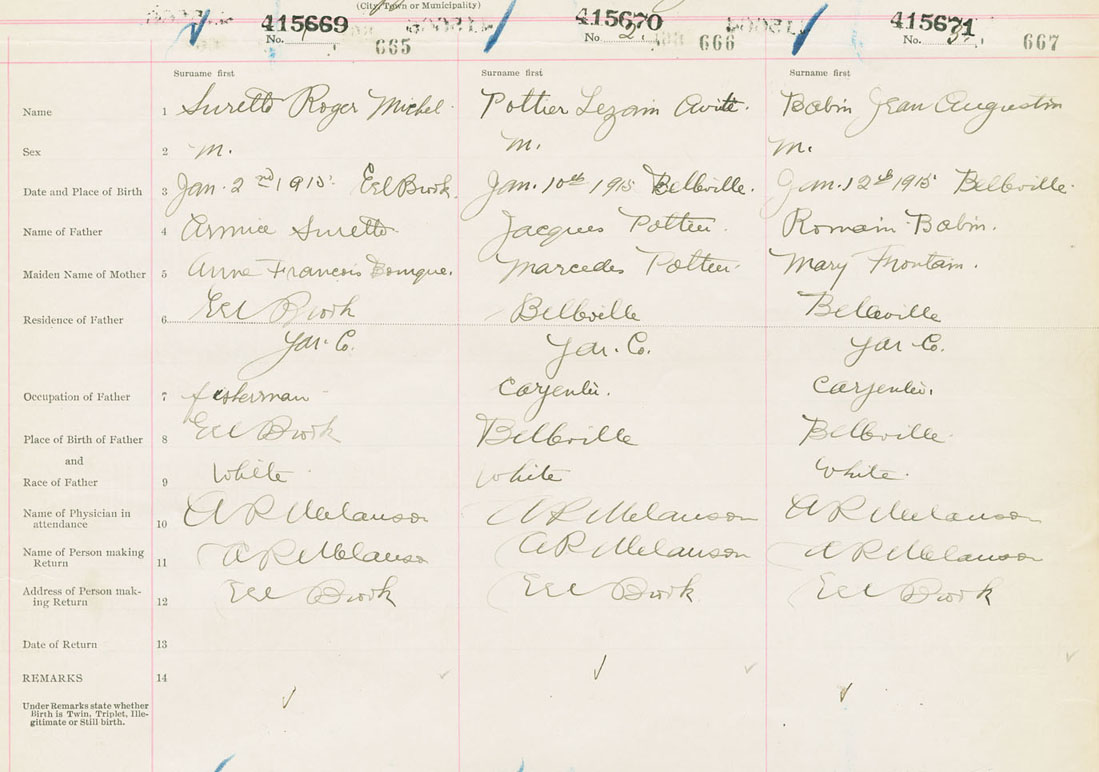 (City, Town or Municipality)
415669 415670 415671
No. 1 665 No. 2 666 No. 3 667
Surname first Surname first Surname first
Name 1 Surette Roger Michel Pottier Lezain Avite. Babin Jean Augustin
Sex 2 M. M. M.
Date and Place of Birth 3 Jan. 2nd 1915. Eel Brook. Jan. 10th 1915 Belleville. Jan. 12th 1915 Belleville.
Name of Father 4 Armice Surette Jacques Pottier. Romain Babin.
Maiden Name of Mother 5 Anne Francois Bourque. Marcedes Pottier. Mary Frontain.
Residence of Father 6 Eel Brook Belleville Belleville
Yar. Co. Yar. Co. Yar Co.
Occupation of Father 7 fisherman Carpenter. Carpenter.
Place of Birth of Father 8 Eel Brook Belleville Belleville.
and
Race of Father 9 White White White.
Name of Physician in
attendance 10 A R Melanson A R Melanson A R Melanson
Name of Person making
Return 11 A R Melanson A R Melanson A R Melanson
Address of Person mak-
ing Return 12 Eel Brook Eel Brook Eel Brook
Date of Return 13
REMARKS 14
Under Remarks state whether
Birth is Twin, Triplet, Ille-
gitimate or Still birth.